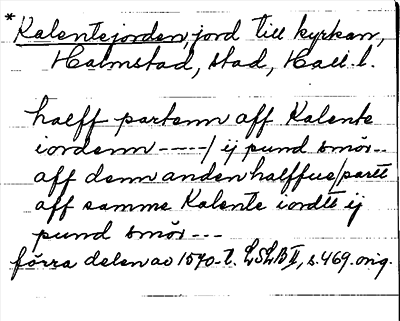 * Kalentejorden, jord till kyrkan,
Halmstad, stad, Hall. l.
halff partenn aff Kalente
iordenn ----/ ij pund smör--
aff denn anden halffue/partt
aff samme Kalente iordtt ij
pund smör ---
förra delen av 1570-t. LSLB II, s. 469. orig.